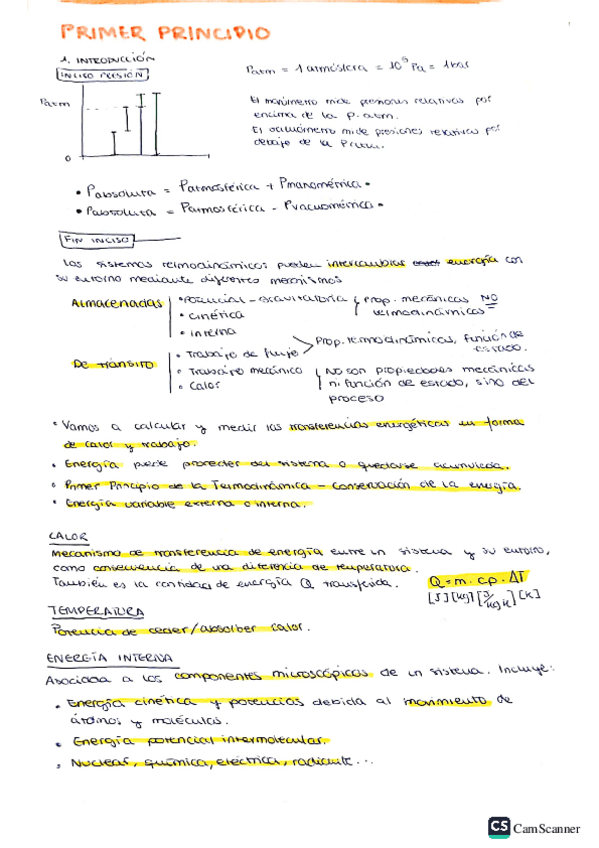 PRIMER PRINCIPIO
1. INTRODUCCIÓN
INCISO PRESIÓN
Patm = 1 atmósfera = 10⁵ Pa = 1 bar
Patm
0
El manómetro mide presiones relativas por
encima de la p. atm.
El vacuómetro mide presiones relativas por
debajo de la Patm.
• Pabsoluta = Patmosférica + Pmanométrica •
• Pabsoluta = Patmosférica - Pvacuométrica •
FIN INCISO
Los sistemas termodinámicos pueden intercambiar energía con
su entorno mediante diferentes mecanismos
Almacenadas
• Potencial - gravitatoria
• cinética
• interna
prop. mecánicas NO
termodinámicas
Prop. termodinámicas, función de
estado.
De tránsito
• Trabajo de flujo
• Trabajo mecánico
• Calor
NO son propiedades mecánicas
ni función de estado, sino del
proceso
• Vamos a calcular y medir las transferencias energéticas en forma
de calor y trabajo.
• Energía puede proceder del sistema o quedarse acumulada.
• Primer Principio de la Termodinámica - Conservación de la energía.
• Energía variable externa o interna.
CALOR
Mecanismo de transferencia de energía entre un sistema y su entorno,
como consecuencia de una diferencia de temperatura.
También es la cantidad de energía Q transferida.
Q = m · cp · ΔT
[J] [kg] [J/kg K] [K]
TEMPERATURA
Potencia de ceder/absorber calor.
ENERGÍA INTERNA
Asociada a los componentes microscópicos de un sistema. Incluye:
• Energía cinética y potencias debida al movimiento de
átomos y moléculas.
• Energía potencial intermolecular.
• Nuclear, química, eléctrica, radiante...
CS CamScanner